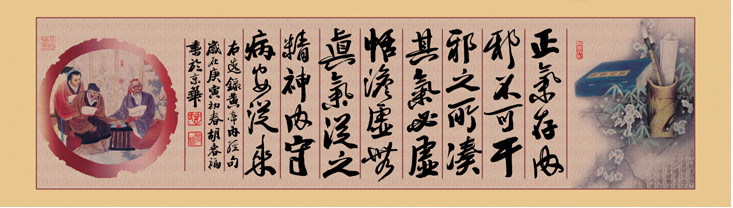 正氣存内
邪不可干
邪之所湊
其氣必虚
恬澹虚無
真氣從之
精神内守
病安從来
右選錄黄帝内經句
歲在庚寅初春胡福
書於京華